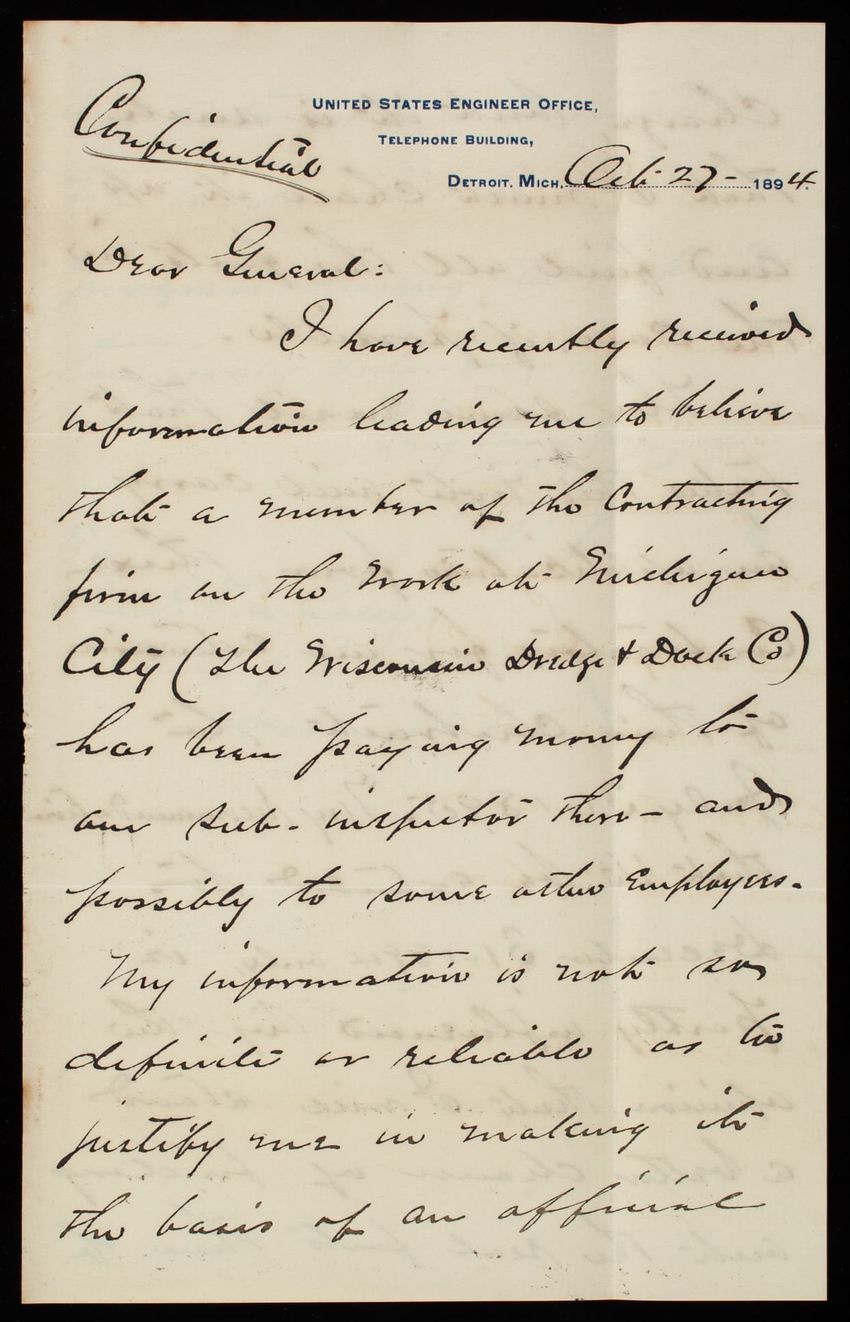 Confidential
UNITED STATES ENGINEER OFFICE,
TELEPHONE BUILDING,
DETROIT. MICH. Oct- 27- 1894.
Dear General:
I have recently received
information leading me to believe
that a member of the Contracting
firm on the work at Michigan
City (The Wisconsin Dredge & Dock Co)
has been paying money to
our sub-inspector there - and
possibly to some other Employees.
My information is not so
definite or reliable as to
justify me in making it
the basis of an official